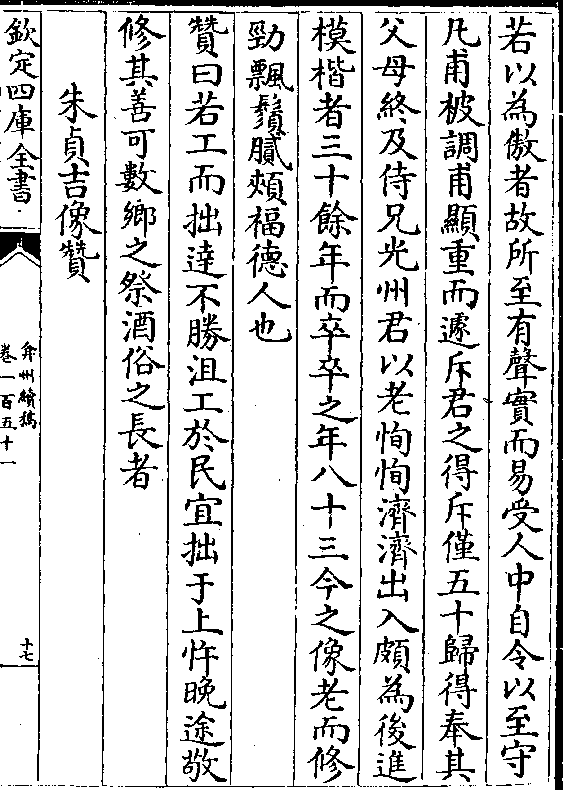 若以為傲者故所至有聲實而易受人中自令以至守
凡甫被調甫顯重而遽斥君之得斥僅五十歸得奉其
父母終及侍兄光州君以老恂恂濟濟出入頗為後進
模楷者三十餘年而卒卒之年八十三今之像老而修
勁飄鬚膩頰福德人也
贊曰若工而拙達不勝沮工於民宜拙于上忤晚途敬
修其善可數鄉之祭酒俗之長者
朱貞吉像贊
欽定四庫全書
弇州續稿
卷一百五十一
十七